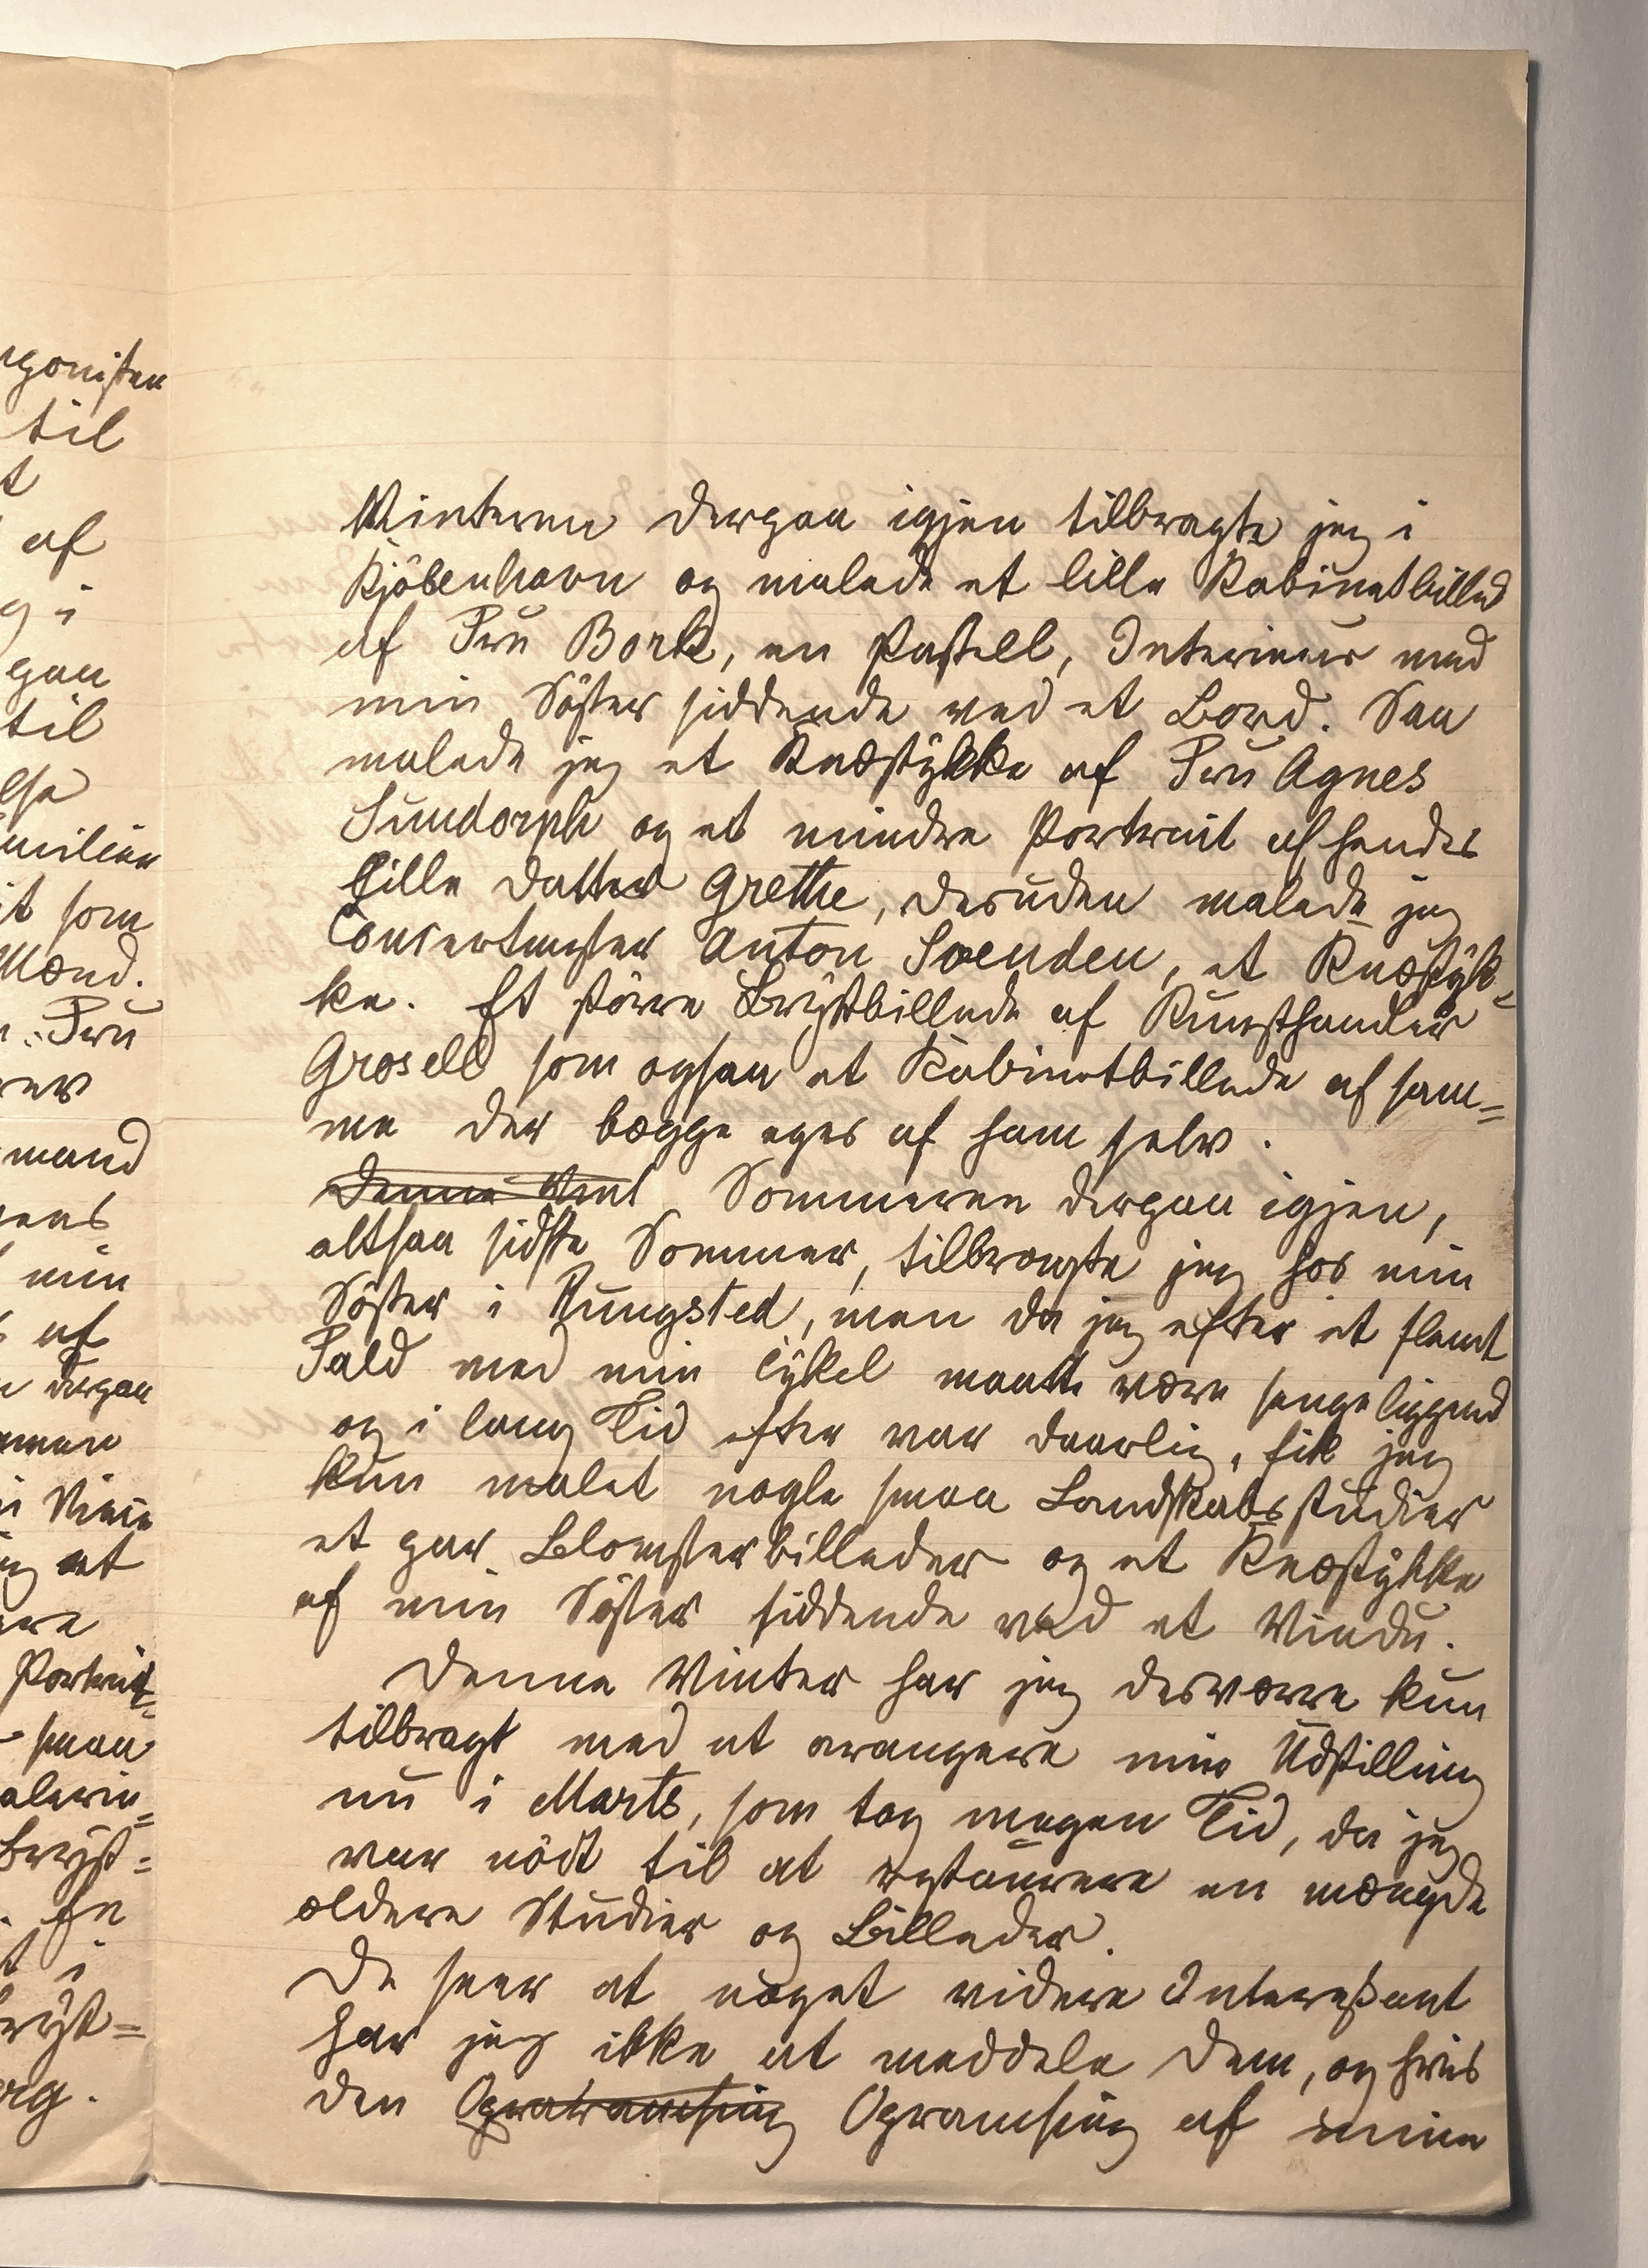 rgonisten
til
t
af
g i
paa
til
else
milien
it som
Mænd.
Fru
rer
mand
rens
min
af
derpaa
mmen
i Wien
et
ere
Portrait-
smaa
alerin=
Bryst=
En
t i
Bryst=
rg.
Winteren derpaa igjen tilbragte jeg i
Kjöbenhavn og malede et lille Kabinetbilled
af Fru Bork, en Pastell, Interieur med
min Söster siddende ved et Bord. Saa
malede jeg et Knæstykke af Fru Agnes
Lundorph og et mindre Portrait af hendes
lille Datter Grethe, desuden malede jeg
Concertmester Anton Svenden, et Knæstyk=
ke. Et större Brystbillede af Kunsthandler
Grosell som ogsaa et Kabinetbillede af sam=
me der begge eges af ham selv.
Denne Vint Sommeren derpaa igjen,
altsaa sidste Sommer, tilbragte jeg hos min
Söster i Rungsted, men da jeg efter et slemt
Fald med min Cykel maatte være sengeliggend
og i lang Tid efter var daarlig, fik jeg
kun malet nogle smaa Landskabsstudier
et par Blomsterbilleder og et Knæstykke
af min Söster siddende ved et Vindu.
Denne Winter har jeg desværre kun
tilbragt med at arangere min Udstilling
nu i Marts, som tog megen Tid, da jeg
var nödt til at restaurere en mængde
ældere Studier og Billeder.
De seer at noget videre Interessant
har jeg ikke at meddele Dem, og hvis
den Opramsing af mine